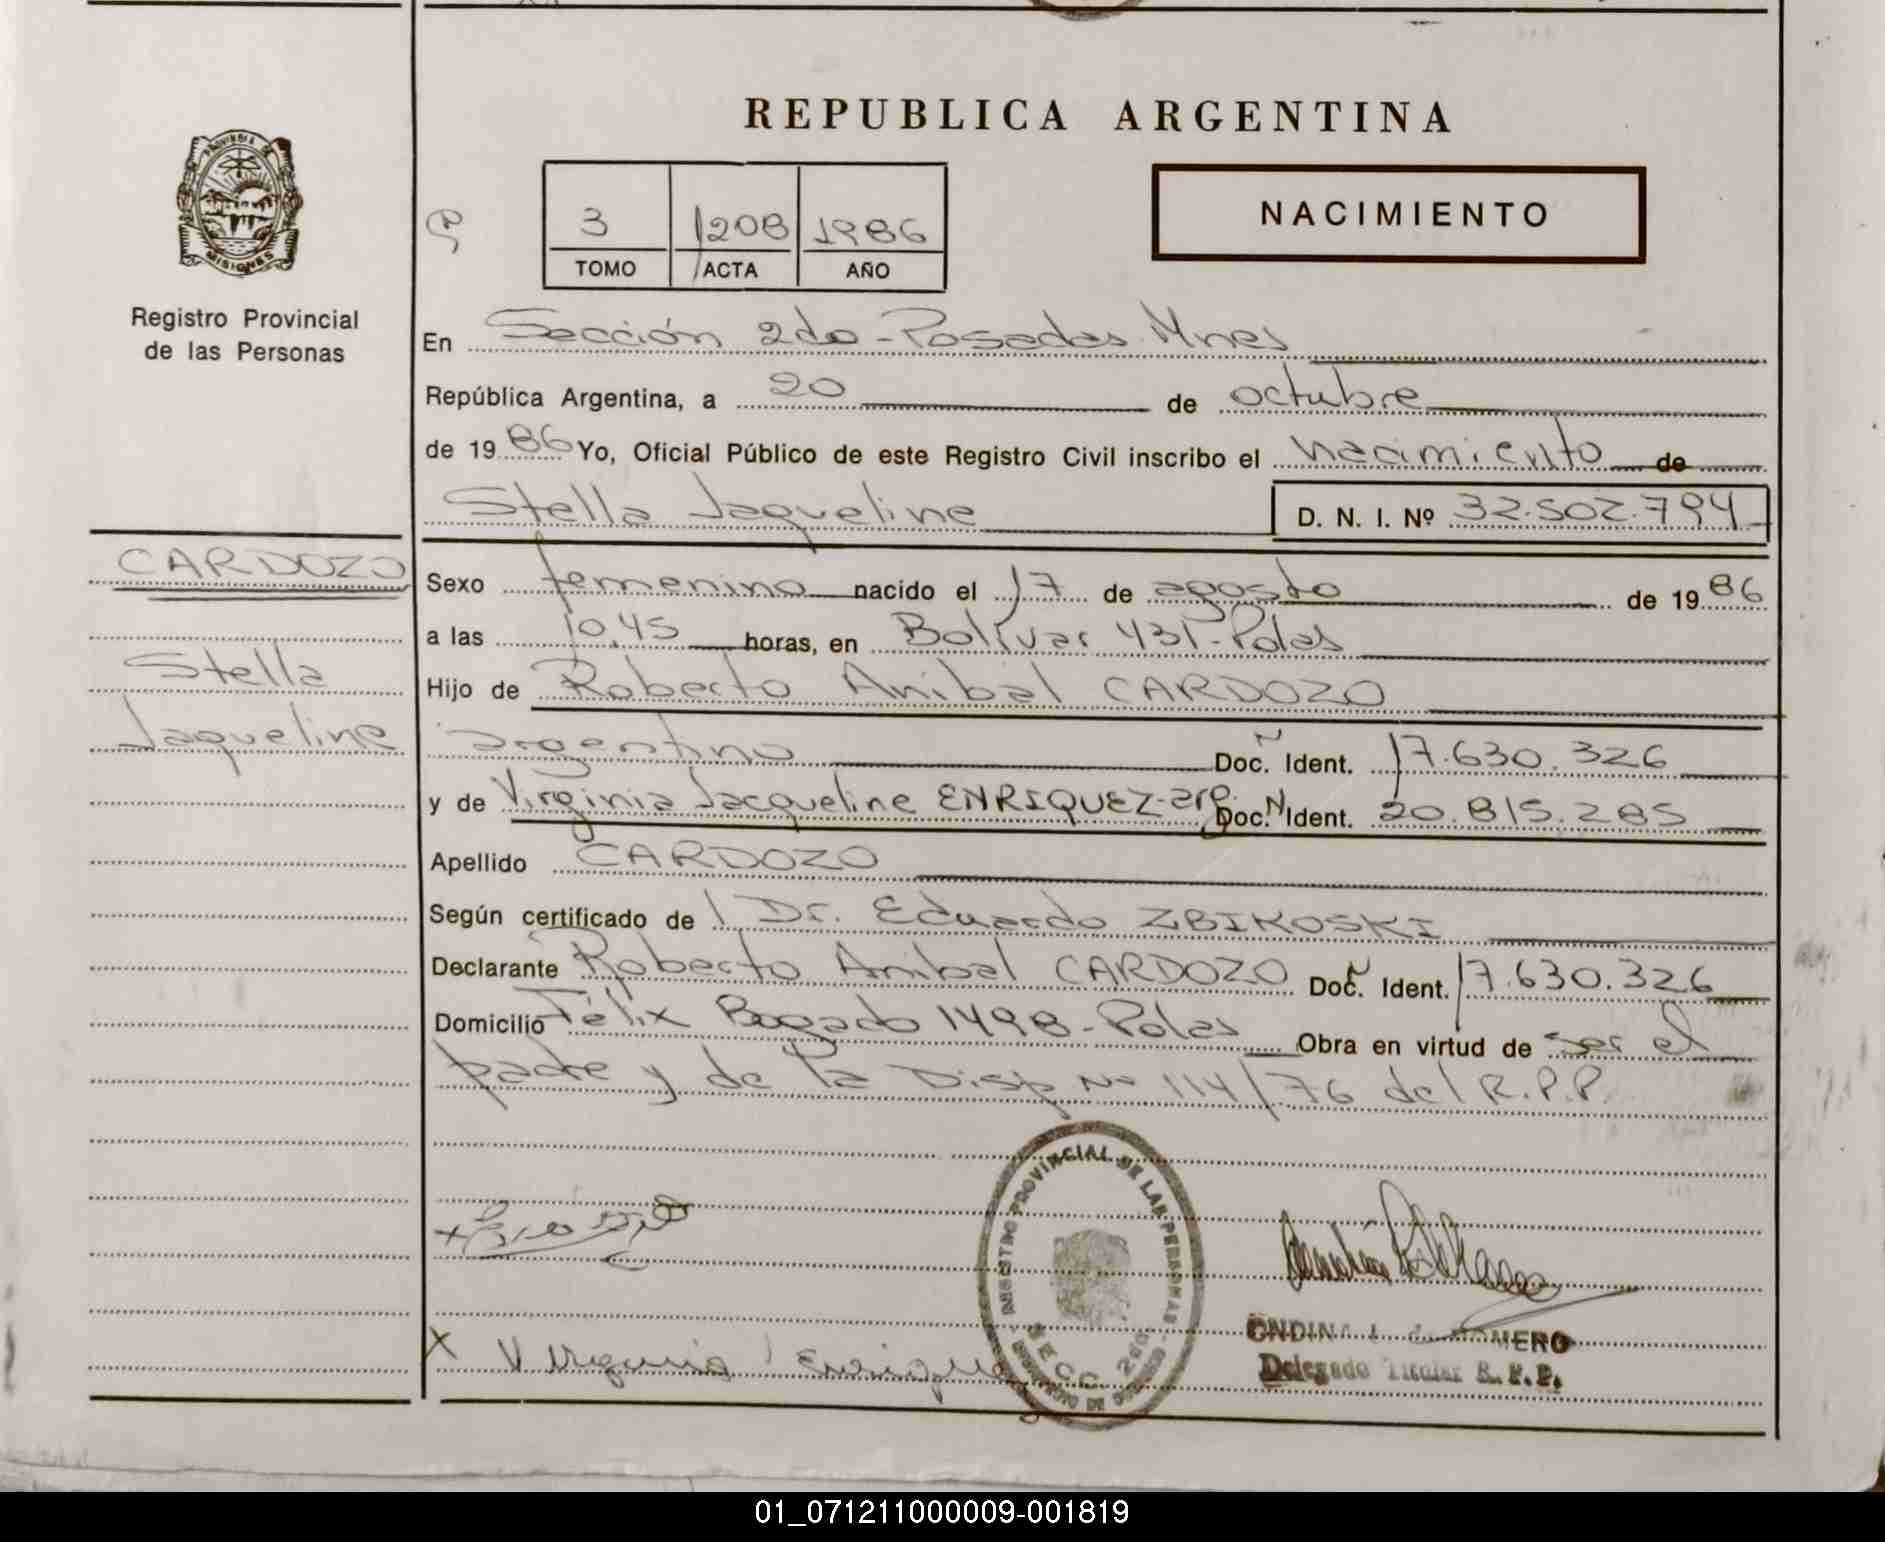 REPUBLICA ARGENTINA
PROVINCIA DE
MISIONES
Registro Provincial
de las Personas
3 1208 1986
TOMO ACTA AÑO
NACIMIENTO
En Sección 2da - Posadas Mnes
República Argentina, a 20 de octubre
de 1986 Yo, Oficial Público de este Registro Civil inscribo el nacimiento de
Stella Jaqueline D. N. I. Nº 32.502.794
CARDOZO
Stella
Jaqueline
Sexo femenino nacido el 17 de agosto de 1986
a las 10,45 horas, en Bolívar 431 - Pdas
Hijo de Roberto Anibal CARDOZO
argentino Doc. Ident. 17.630.326
y de Virginia Jacqueline ENRIQUEZ - arg. Doc. N Ident. 20.815.285
Apellido CARDOZO
Según certificado de l Dr. Eduardo ZBIKOSKI
Declarante Roberto Anibal CARDOZO Doc. Ident. 17.630.326
Domicilio Félix Bogado 1498 - Pdas Obra en virtud de ser el
padre y de la Disp Nº 114/76 del R.P.P.
REGISTRO PROVINCIAL DE LAS PERSONAS
SECC. 2da
x
X Virginia Enriquez
ONDINA ROMERO
Delegado Titular R.P.P.
01_071211000009-001819